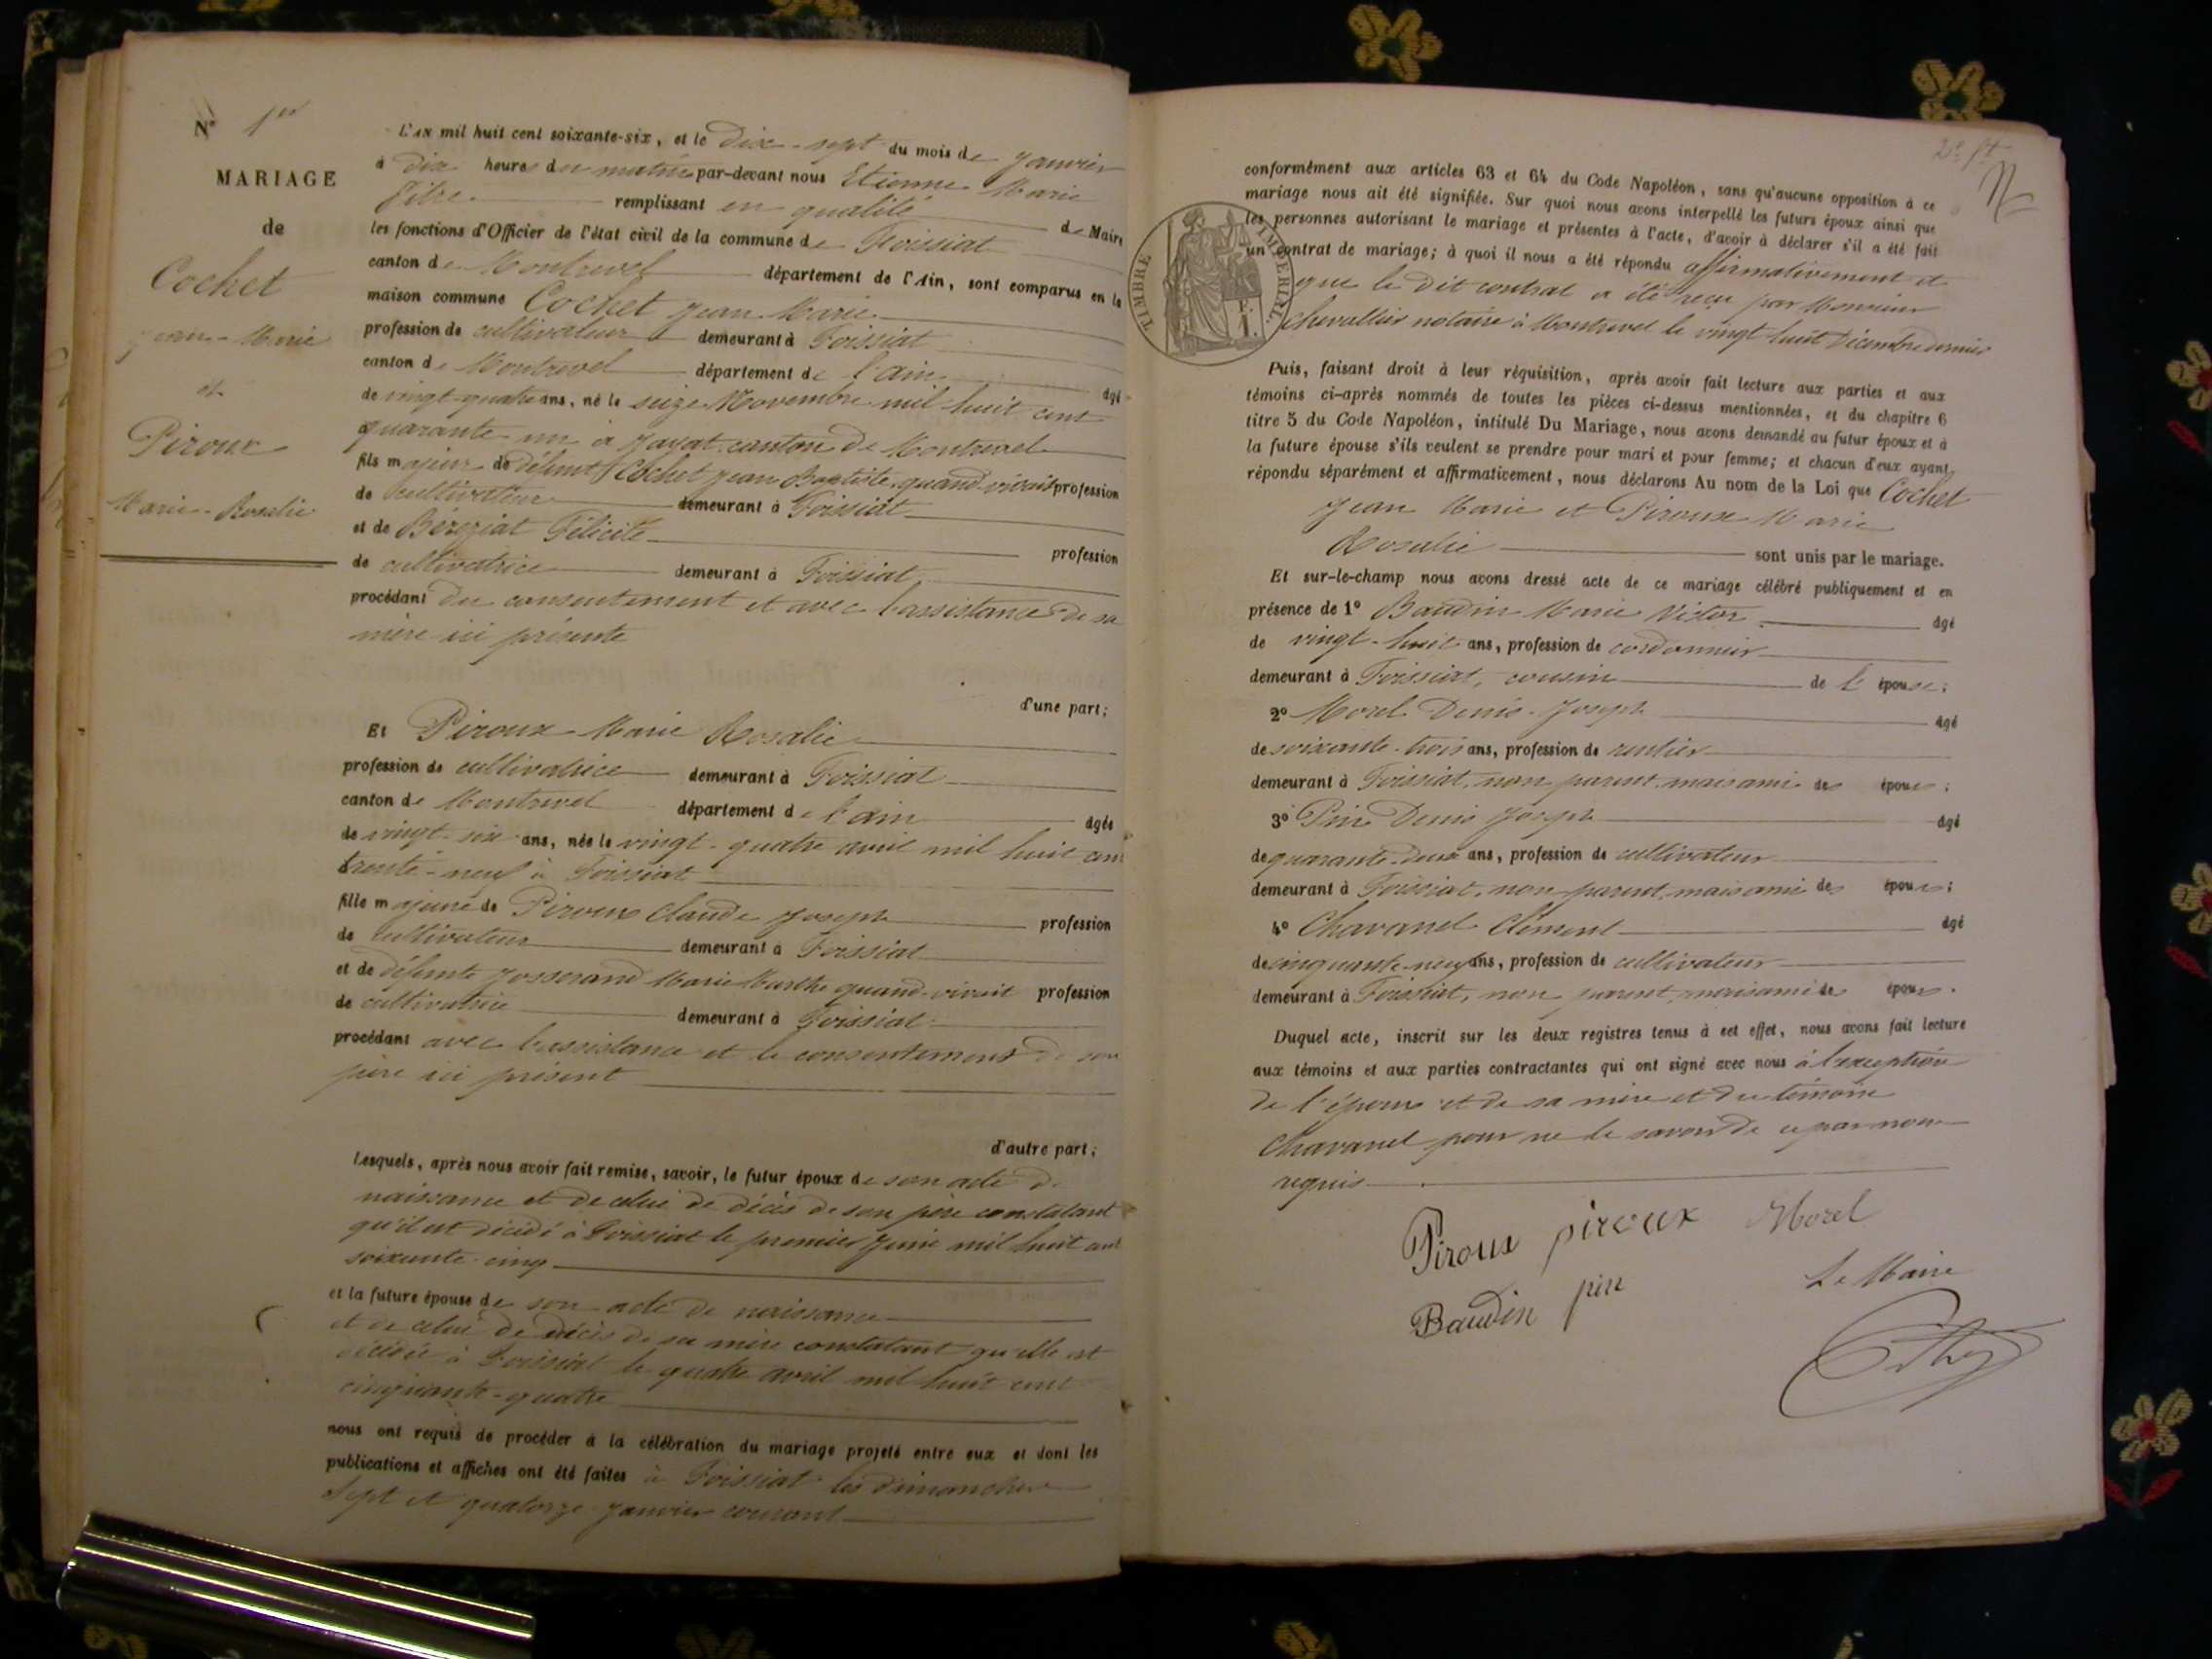 N° 1er
MARIAGE
de
Cochet
Jean-Marie
et
Piroux
Marie-Rosalie
L'an mil huit cent soixante-six, et le dix-sept du mois de janvier
à dix heures du matin par-devant nous Etienne Marie
remplissant en qualité de Maire
les fonctions d'Officier de l'état civil de la commune de Foissiat
canton de Montrevel département de l'Ain, sont comparus en la
maison commune Cochet Jean Marie
profession de cultivateur demeurant à Foissiat
canton de Montrevel département de l'ain âgé
de vingt-quatre ans, né le seize Novembre mil huit cent
quarante-un à Jayat canton de Montrevel
fils majeur de défunt Cochet Jean Baptiste, quand vivait profession
de cultivateur demeurant à Foissiat
et de Béréziat Félicité profession
de cultivatrice demeurant à Foissiat
procédant du consentement et avec l'assistance de sa
mère ici présente
d'une part;
Et Piroux Marie Rosalie
profession de cultivatrice demeurant à Foissiat
canton de Montrevel département de l'ain âgée
de vingt-six ans, née le vingt-quatre avril mil huit cent
trente-neuf à Foissiat
fille majeure de Piroux Claude Joseph profession
de cultivateur demeurant à Foissiat
et de défunte Josserand Marie Marthe quand vivait profession
de cultivatrice demeurant à Foissiat
procédant avec l'assistance et le consentement de son
père ici présent
d'autre part;
Lesquels, après nous avoir fait remise, savoir, le futur époux de son acte de
naissance et de celui de décès de son père constatant
qu'il est décédé à Foissiat le premier juin mil huit cent
soixante-cinq
et la future épouse de son acte de naissance
et de celui de décès de sa mère constatant qu'elle est
décédée à Foissiat le quatre avril mil huit cent
cinquante-quatre
nous ont requis de procéder à la célébration du mariage projeté entre eux et dont les
publications et affiches ont été faites à Foissiat les dimanches
sept et quatorze janvier courant
conformément aux articles 63 et 64 du Code Napoléon, sans qu'aucune opposition à ce
mariage nous ait été signifiée. Sur quoi nous avons interpellé les futurs époux ainsi que
les personnes autorisant le mariage et présentes à l'acte, d'avoir à déclarer s'il a été fait
un contrat de mariage; à quoi il nous a été répondu affirmativement et
que le dit contrat a été reçu par Monsieur
Chevallier notaire à Montrevel le vingt huit Décembre dernier
TIMBRE IMPERIAL
Puis, faisant droit à leur réquisition, après avoir fait lecture aux parties et aux
témoins ci-après nommés de toutes les pièces ci-dessus mentionnées, et du chapitre 6
titre 5 du Code Napoléon, intitulé Du Mariage, nous avons demandé au futur époux et à
la future épouse s'ils veulent se prendre pour mari et pour femme; et chacun d'eux ayant
répondu séparément et affirmativement, nous déclarons Au nom de la Loi que Cochet
Jean Marie et Piroux Marie
Rosalie sont unis par le mariage.
Et sur-le-champ nous avons dressé acte de ce mariage célébré publiquement et en
présence de 1° Baudin Marie Victor âgé
de vingt-huit ans, profession de cordonnier
demeurant à Foissiat, cousin de l'épouse;
2° Morel Denis-Joseph âgé
de soixante-trois ans, profession de rentier
demeurant à Foissiat, non parent, mais ami des époux;
3° Pin Denis Joseph âgé
de quarante-deux ans, profession de cultivateur
demeurant à Foissiat, non parent, mais ami des époux;
4° Chavanel Clément âgé
de cinquante-neuf ans, profession de cultivateur
demeurant à Foissiat, non parent, mais ami des époux.
Duquel acte, inscrit sur les deux registres tenus à cet effet, nous avons fait lecture
aux témoins et aux parties contractantes qui ont signé avec nous à l'exception
de l'époux et de sa mère et du témoin
Chavanel pour ne le savoir de ce par nous
requis
Piroux piroux Morel
Baudin pin Le Maire